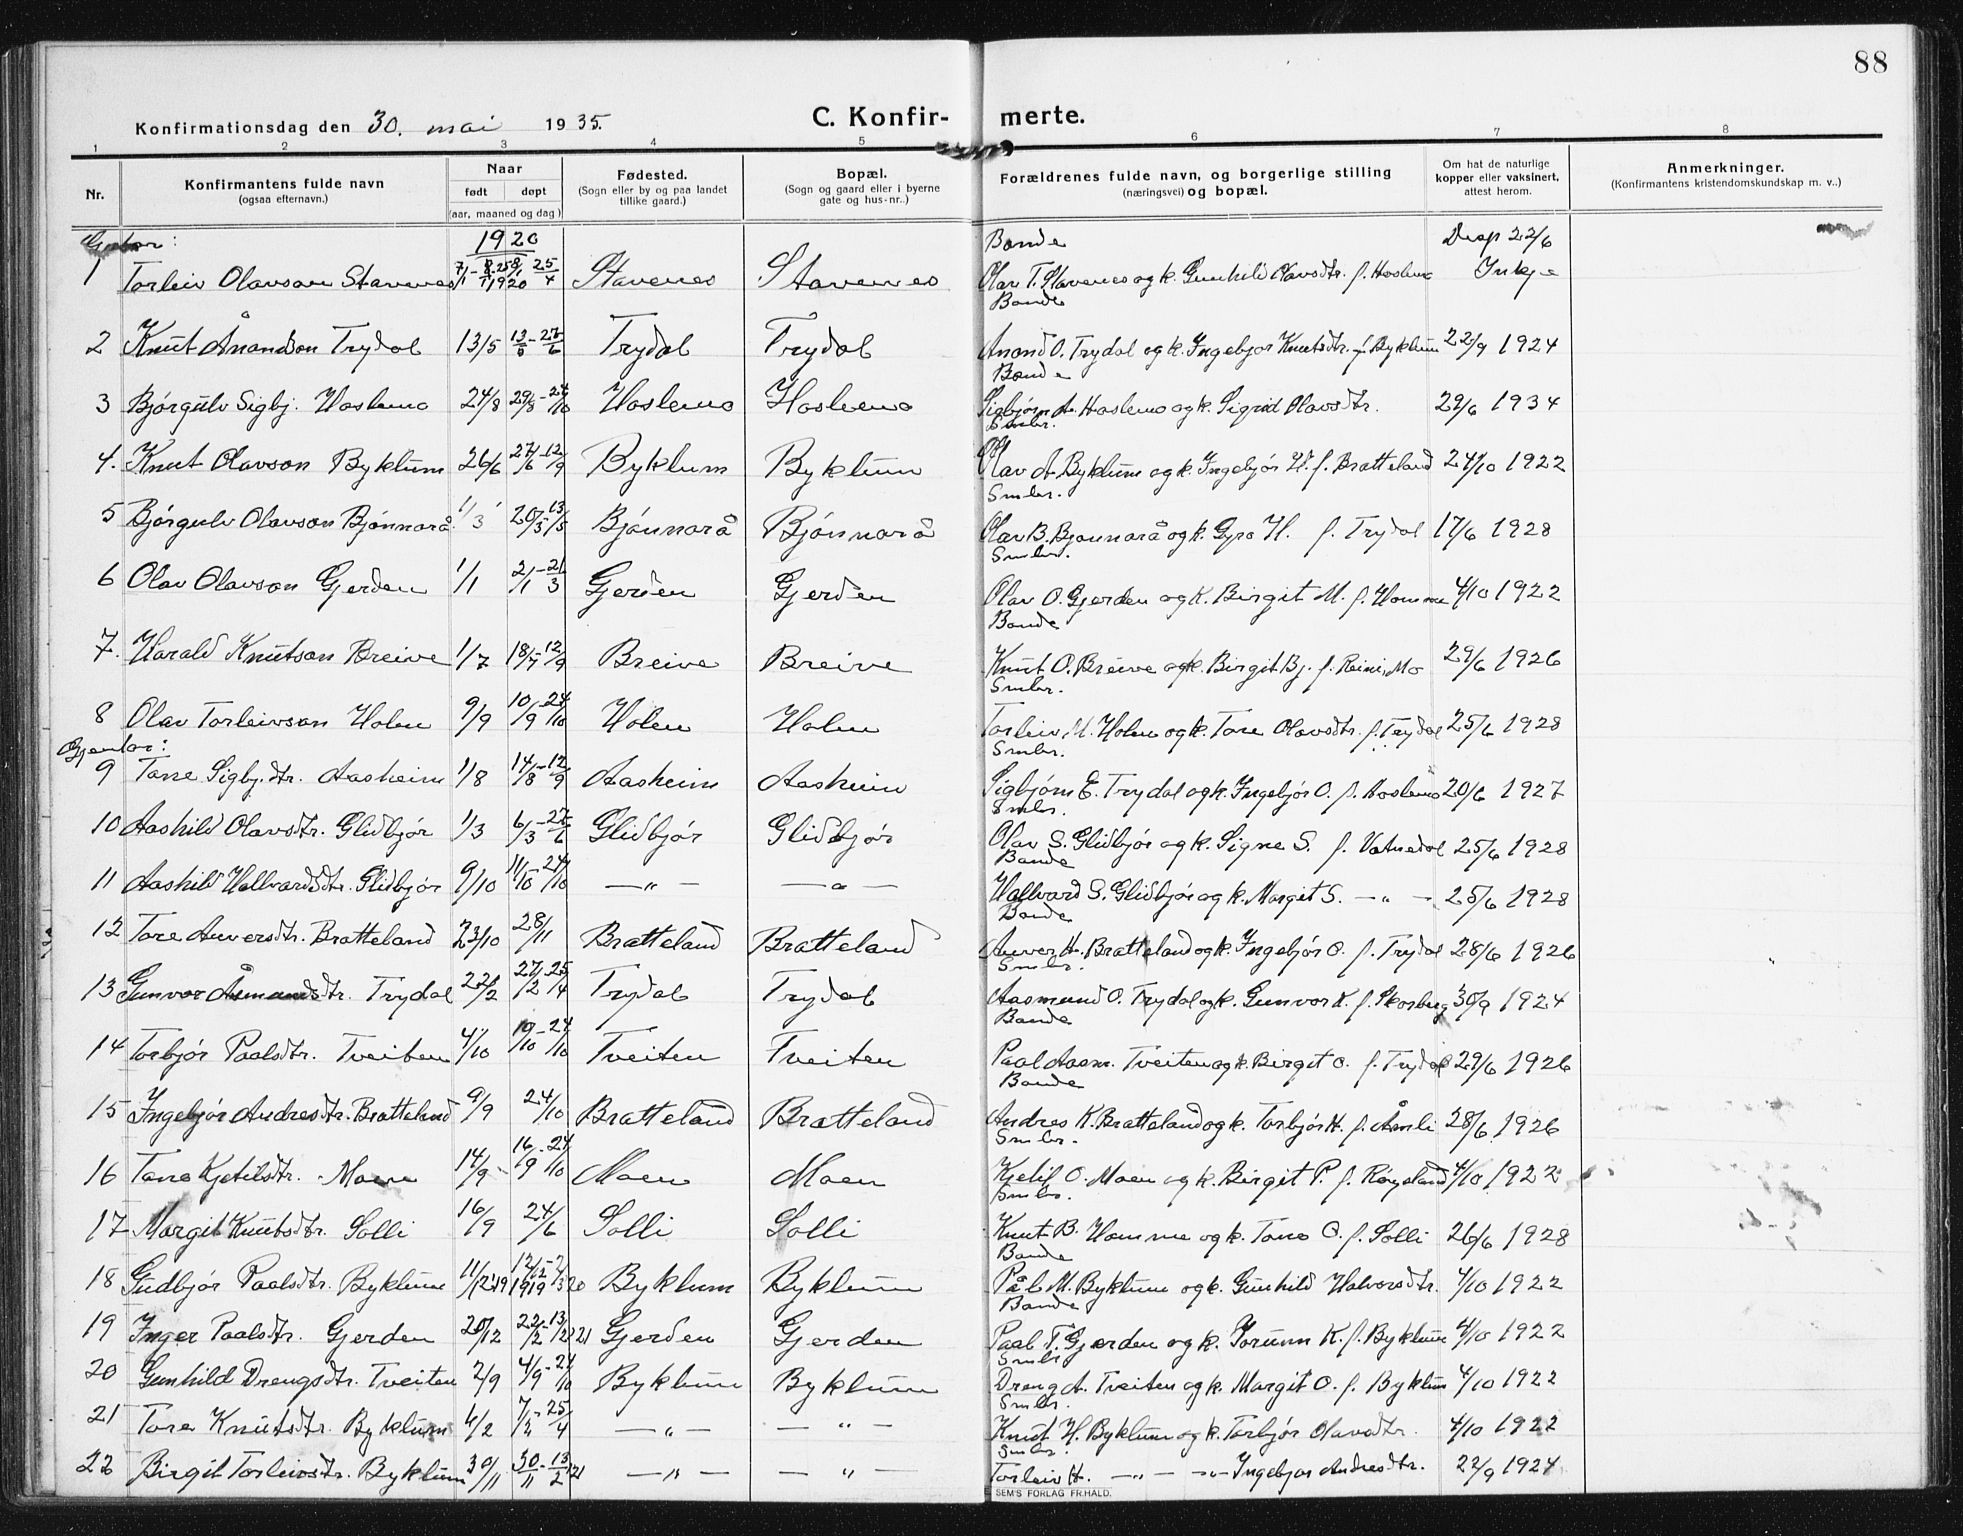 88
Konfirmationsdag den 30. mai 1935.
C. Konfir- merte.
1 2 3 4 5 6 7 8
Nr. Konfirmantens fulde navn (ogsaa efternavn.) Naar født døpt (aar, maaned og dag) Fødested. (Sogn eller by og paa landet tillike gaard.) Bopæl. (Sogn og gaard eller i byerne gate og hus-nr..) Forældrenes fulde navn, og borgerlige stilling (næringsvei) og bopæl. Om hat de naturlige kopper eller vaksinert, attest herom. Anmerkninger. (Konfirmantens kristendomskundskap m. v..)
1920 Bonde Disp 22/6
1 Torleiv Olavson Stavenes 25/4 Stavenes Stavenes Olav T. Stavenes og k. Gunhild Olavsdtr. f. Hoslemo Inkje
Bonde
2 Knut Ånandson Trydal 13/5 Trydal Trydal Anand O. Trydal og k. Ingebjor Knutsdtr. f. Byklum 22/9 1924
Bonde
3 Bjørgulv Sigbj. Hoslemo 24/8 29/8-24/10 Hoslemo Hoslemo Sigbjørn A. Hoslemo og k. Sigrid Olavsdtr. 29/6 1934
Smbr.
4. Knut Olavson Byklum 26/6 27/6-12/9 Byklum Byklum Olav A. Byklum og k. Ingebjør H. f. Bratteland 24/10 1922
Smbr.
5 Bjørgulv Olavson Bjønnarå 1/3 20/3-13/5 Bjønnarå Bjønnarå Olav B. Bjønnarå og k. Gyro H. f. Trydal 17/6 1928
Smbr.
6 Olav Olavson Gjerden 1/1 2/1-21/3 Gjerden Gjerden Olav O. Gjerden og k. Birgit M. f. Homme 4/10 1922
Bonde
7. Harald Knutson Breive 1/7 18/7-12/9 Breive Breive Knut O. Breive og k. Birgit Bj. f. Reini, Mo 29/6 1926
Smbr.
8 Olav Torleivson Holen 9/9 10/9-24/10 Holen Holen Torleiv M. Holen og k. Tore Olavsdtr. f. Trydal 25/6 1928
Gjentor: Smbr.
9 Tone Sigbj.dtr. Aasheim 1/8 14/8-12/9 Aasheim Aasheim Sigbjørn E. Trydal og k. Ingebjør O. f. Hoslemo 20/6 1927
Smbr.
10 Aashild Olavsdtr. Glidbjør 1/3 6/3-27/6 Glidbjør Glidbjør Olav S. Glidbjør og k. Signe S. f. Vatnedal 25/6 1928
Bonde
11 Aashild Hallvardsdtr. Glidbjør 9/10 11/10-24/10 — „ — — „ — Hallvard S. Glidbjør og k. Margit S. — „ — 25/6 1928
Bonde
12 Tore Anversdtr. Bratteland 23/10 28/11 Bratteland Bratteland Anver H. Bratteland og k. Ingebjør O. f. Trydal 28/6 1926
Smbr.
13 Gunvor Åsmundsdtr. Trydal 22/2 27/2-25/4 Trydal Trydal Aasmund O. Trydal og k. Gunvor K. f. Skosberg 30/9 1924
Bonde
14 Torbjør Paalsdtr. Tveiten 4/10 10/10-24/10 Tveiten Tveiten Paal Aasm. Tveiten og k. Birgit O. f. Trydal 29/6 1926
Bonde
15 Ingebjør Andresdtr. Bratteland 9/9 24/10 Bratteland Bratteland Andres K. Bratteland og k. Torbjør H. f. Åmli 28/6 1926
Smbr.
16 Tone Kjetilsdtr. Moen 14/9 16/9-24/10 Moen Moen Kjetil O. Moen og k. Birgit P. f. Røysland 4/10 1922
Smbr.
17 Margit Knutsdtr. Solli 16/9 24/6 Solli Solli Knut B. Homme og k. Tone O. f. Solli 26/6 1928
Bonde
18 Gudbjør Paalsdtr. Byklum 11/12 19 Byklum Byklum Pål M. Byklum og k. Gunhild Halvorsdtr. 4/10 1922
Bonde
19 Inger Paalsdtr. Gjerden 20/12 22/12-13/2 21 Gjerden Gjerden Paal T. Gjerden og k. Jorunn K. f. Byklum 4/10 1922
Smbr
20 Gunhild Drengsdtr. Tveiten 2/9 4/9-24/10 Byklum Byklum Dreng A. Tveiten og k. Margit O. f. Byklum 4/10 1922
Smbr.
21 Tore Knutsdtr. Byklum 4/2 7/2-25/4 — „ — — „ — Knut H. Byklum og k. Torbjør Olavsdtr. 4/10 1922
Smbr.
22 Birgit Torleivsdtr. Byklum 30/11 30/11-13/2 21 — „ — — „ — Torleiv H. — „ — — „ — Ingebjor Andresdtr. 22/9 1924
SEM'S FORLAG FR.HALD.